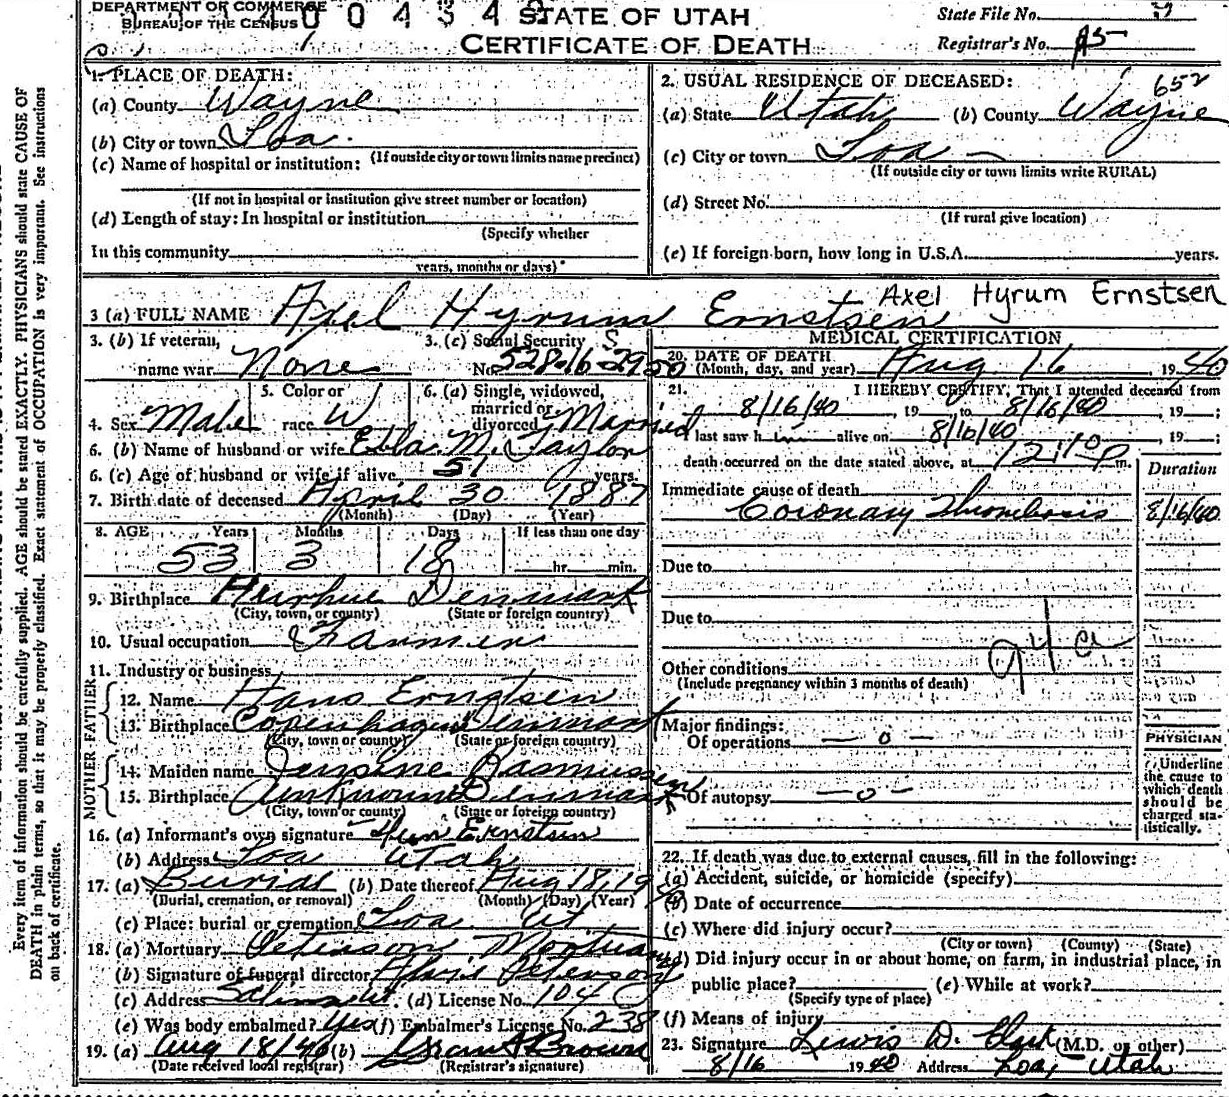 DEPARTMENT OF COMMERCE
BUREAU OF THE CENSUS
0 0 4 3 4
STATE OF UTAH
CERTIFICATE OF DEATH
State File No.
Registrar's No. 45
Every item of information should be carefully supplied. AGE should be stated EXACTLY. PHYSICIANS should state CAUSE OF
DEATH in plain terms, so that it may be properly classified. Exact statement of OCCUPATION is very important. See instructions
on back of certificate.
1. PLACE OF DEATH:
(a) County Wayne
(b) City or town Loa.
(If outside city or town limits name precinct)
(c) Name of hospital or institution:
(If not in hospital or institution give street number or location)
(d) Length of stay: In hospital or institution
(Specify whether
In this community
years, months or days)
2. USUAL RESIDENCE OF DECEASED: 652
(a) State Utah (b) County Wayne
(c) City or town Loa -
(If outside city or town limits write RURAL)
(d) Street No.
(If rural give location)
(e) If foreign born, how long in U.S.A. years.
3 (a) FULL NAME Axel Hyrum Ernstsen
Axel Hyrum Ernstsen
3. (b) If veteran,
name war None
3. (c) Social Security
No. 528-16-2950
4. Sex Male
5. Color or
race W
6. (a) Single, widowed,
married or
divorced Married
6. (b) Name of husband or wife Ella M. Taylor
6. (c) Age of husband or wife if alive 51 years.
7. Birth date of deceased April 30 1887
(Month) (Day) (Year)
8. AGE Years Months Days If less than one day
53 3 18 hr. min.
9. Birthplace Denmark
(City, town, or county) (State or foreign country)
10. Usual occupation Farmer
11. Industry or business
FATHER
12. Name Hans Erngtsen
13. Birthplace Copenhagen Denmark
(City, town or county) (State or foreign country)
MOTHER
14. Maiden name Jensine Rasmussen
15. Birthplace Unknown Denmark
(City, town or county) (State or foreign country)
16. (a) Informant's own signature Ernstsen
(b) Address Loa Utah
17. (a) Burial (b) Date thereof Aug 18, 1940
(Burial, cremation, or removal) (Month) (Day) (Year)
(c) Place: burial or cremation Loa Ut
18. (a) Mortuary Peterson Mortuary
(b) Signature of funeral director Peterson
(c) Address Salina Ut. (d) License No. 104
(e) Was body embalmed? Yes (f) Embalmer's License No. 238
19. (a) Aug 18/40 (b) Grant Brown
(Date received local registrar) (Registrar's signature)
MEDICAL CERTIFICATION
20. DATE OF DEATH
(Month, day, and year) Aug 16, 1940
21. I HEREBY CERTIFY, That I attended deceased from
8/16/40, 19 , to 8/16/40, 19 ;
I last saw him alive on 8/16/40, 19 ;
death occurred on the date stated above, at 12:10 P m.
Duration
Immediate cause of death
Coronary Thrombosis 8/16/40
Due to
Due to
94 a
Other conditions
(Include pregnancy within 3 months of death)
Major findings:
Of operations — o —
Of autopsy — o —
PHYSICIAN
Underline
the cause to
which death
should be
charged sta-
tistically.
22. If death was due to external causes, fill in the following:
(a) Accident, suicide, or homicide (specify)
(b) Date of occurrence
(c) Where did injury occur?
(City or town) (County) (State)
(d) Did injury occur in or about home, on farm, in industrial place, in
public place? (e) While at work?
(Specify type of place)
(f) Means of injury
23. Signature Lewis D. (M.D. or other)
8/16 1940 Address Loa, Utah